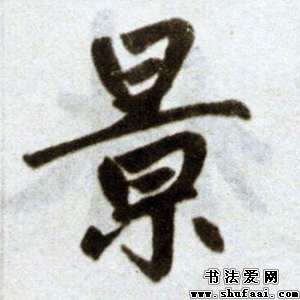 景
书法爱网
www.shufaai.com